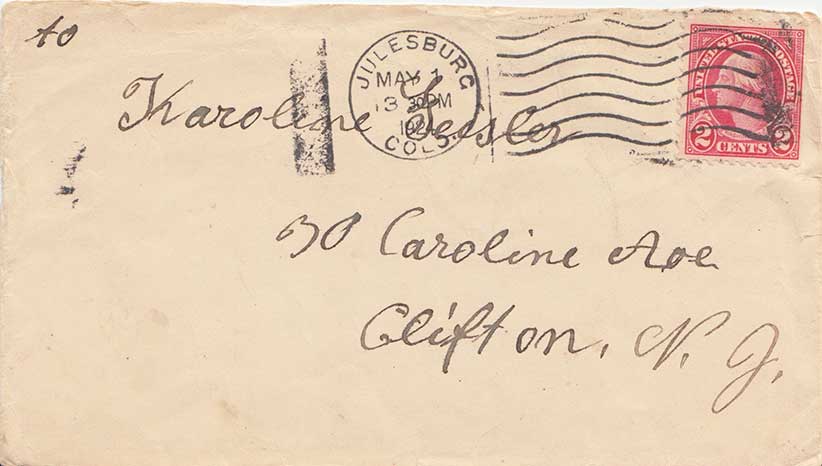 to
JULESBURG
MAY 1
COLO.
UNITED STATES POSTAGE
2 CENTS 2
Karoline
30 Caroline Ave
Clifton, N. J.